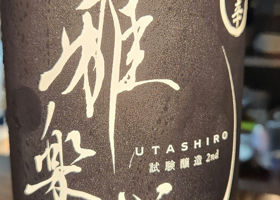 雅楽
UTASHIRO
試験醸造 2nd